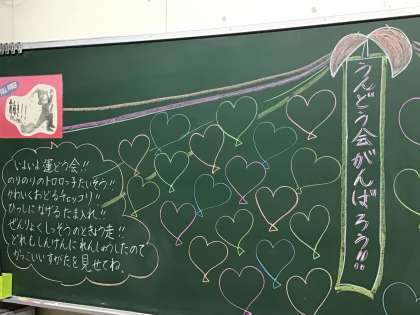 うんどう会がんばろう!!
いよいよ運どう会!!
のりのりのトロロっ子たいそう!!
かわいくおどるチェッコリ!!
ひっしになげるたま入れ!!
ぜんりょくしっそうのときょう走!!
どれもしんけんにれんしゅうしたので
かっこいいすがたを見せてね。